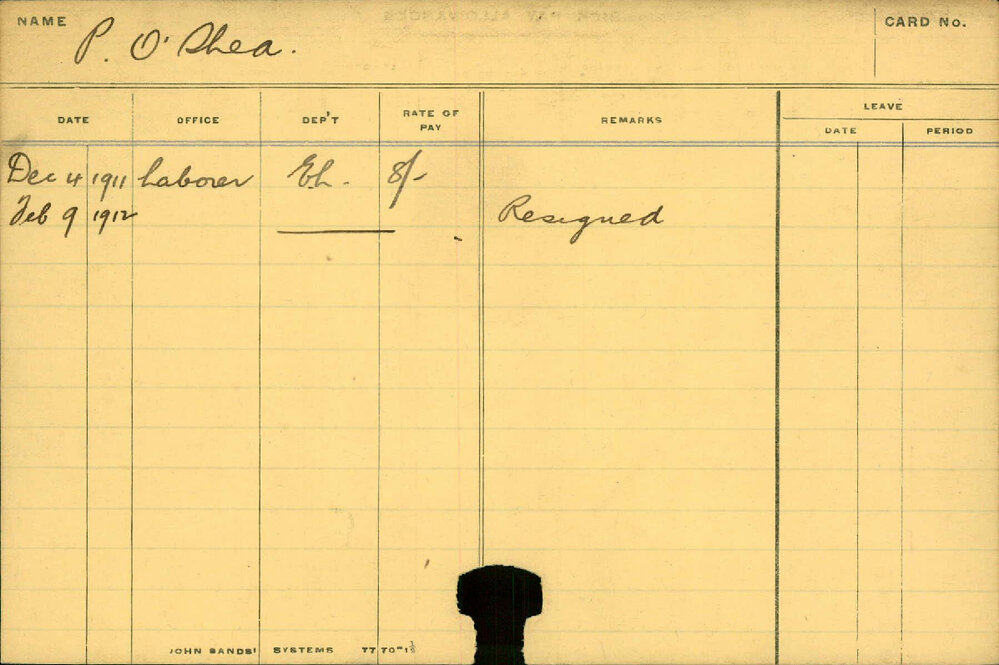 NAME P. O'Shea. CARD No.
LEAVE
DATE OFFICE DEP'T RATE OF PAY REMARKS DATE PERIOD
Dec 4 1911 Laborer Eh. 8/-
Feb 9 1912 Resigned
JOHN SANDS' SYSTEMS